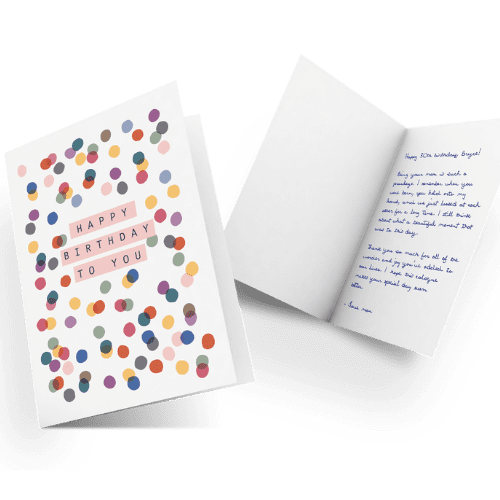 HAPPY
BIRTHDAY
TO YOU
Happy 30th birthday
Being your mom is such a
privilege. I remember when you
were born, you held onto my
hand, and we just looked at each
other for a long time. I still think
about what a beautiful moment that
was to this day.
Thank you so much for all of the
and joy you've added to
our lives. I hope this
makes your special day even
mom